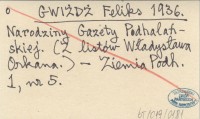 o GWIŻDŻ Feliks 1936.
Narodziny Gazety Podhalań-
skiej. (Z listów Władysława
Orkana.) — Ziemia Podh.
1, nr 5.